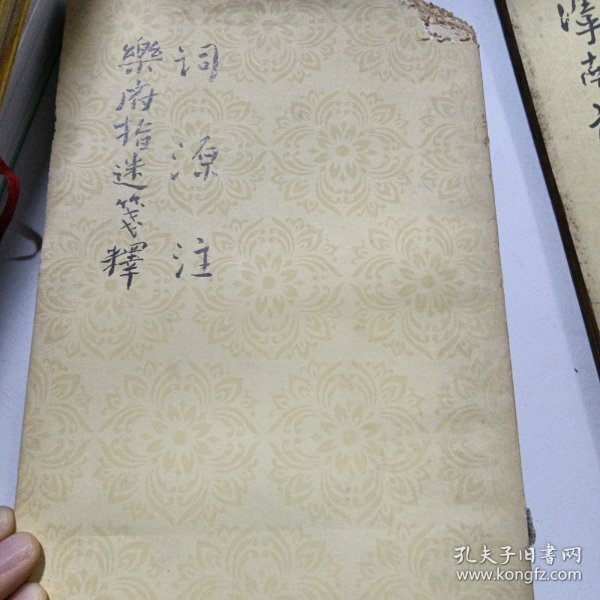 詞源注
樂府指迷箋釋
滹南
孔夫子旧书网
www.kongfz.com